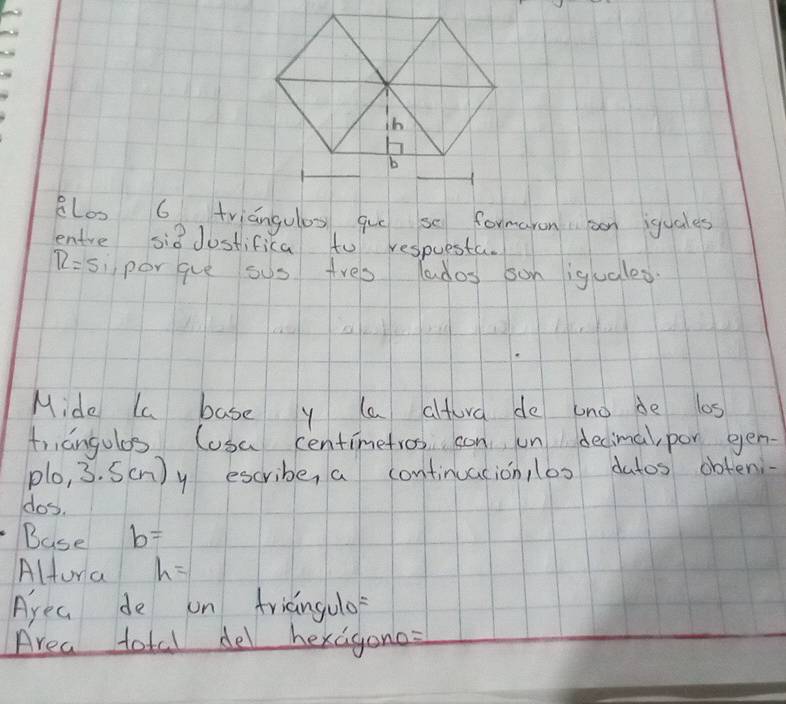 h
b
¿Los 6 triángulos que se formaron son iguales
entre sí? Justifica tu respuesta.
R=si, por que sus tres lados son iguales.
Mide la base y la altura de uno de los
triángulos (usa centímetros con un decimal, por ejem-
plo, 3.5cm) y escribe, a continuación, los datos obteni-
dos.
• Base b=
Altura h=
Área de un triángulo=
Area total del hexágono=